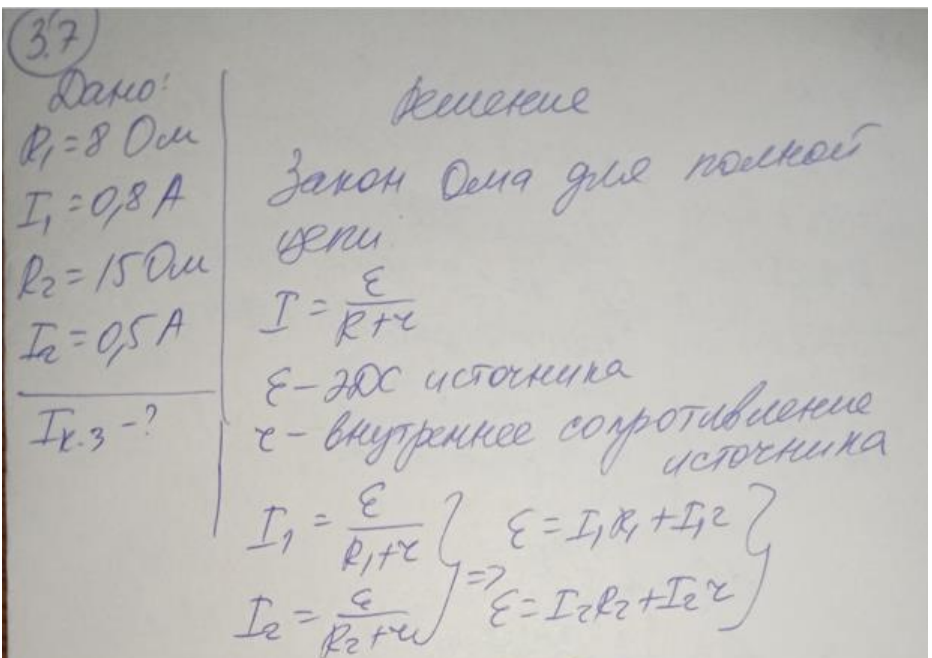 3.7
Дано:
R₁=8 Ом
I₁=0,8 А
R₂=15 Ом
I₂=0,5 А
Iк.з -?
Решение
Закон Ома для полной
цепи
I = ε/(R+r)
ε – ЭДС источника
r – внутреннее сопротивление
источника
I₁ = ε/(R₁+r) } ε=I₁R₁+I₁r }
I₂ = ε/(R₂+r) } => ε=I₂R₂+I₂r }